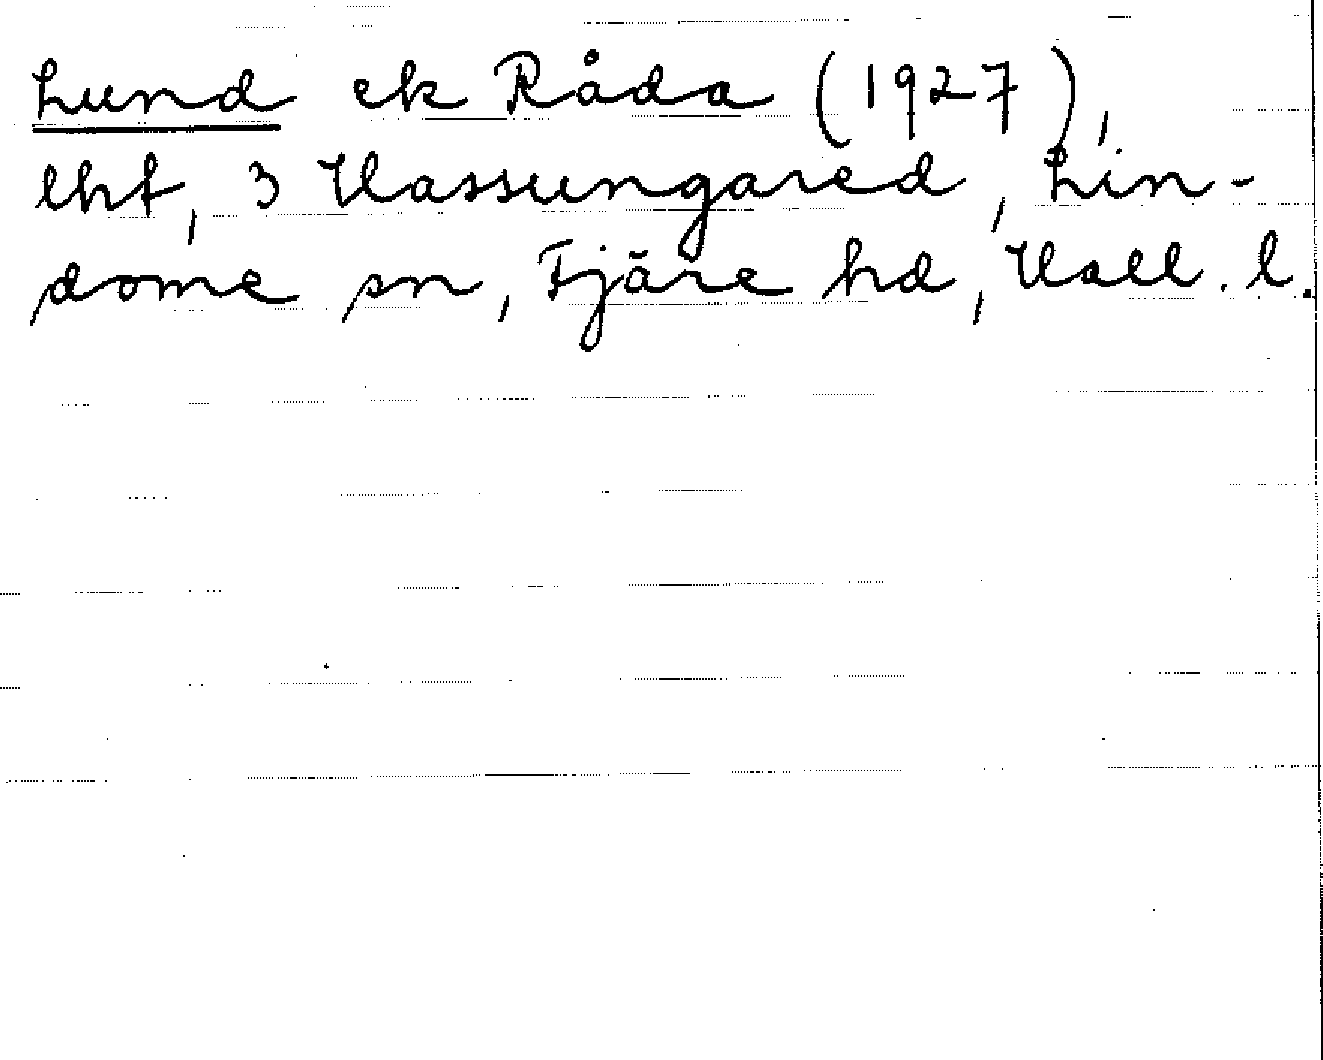 Lund ek Råda (1927),
lht, 3 Hassungared, Lin-
dome sn, Fjäre hd, Hall. l.